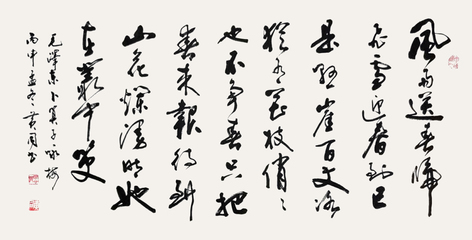 風雨送春歸
飛雪迎春到已
是懸崖百丈冰
猶有花枝俏〻
也不爭春只把
春來報待到
山花爛漫時她
在叢中笑
毛澤東卜算子詠梅
丙申孟冬黃書